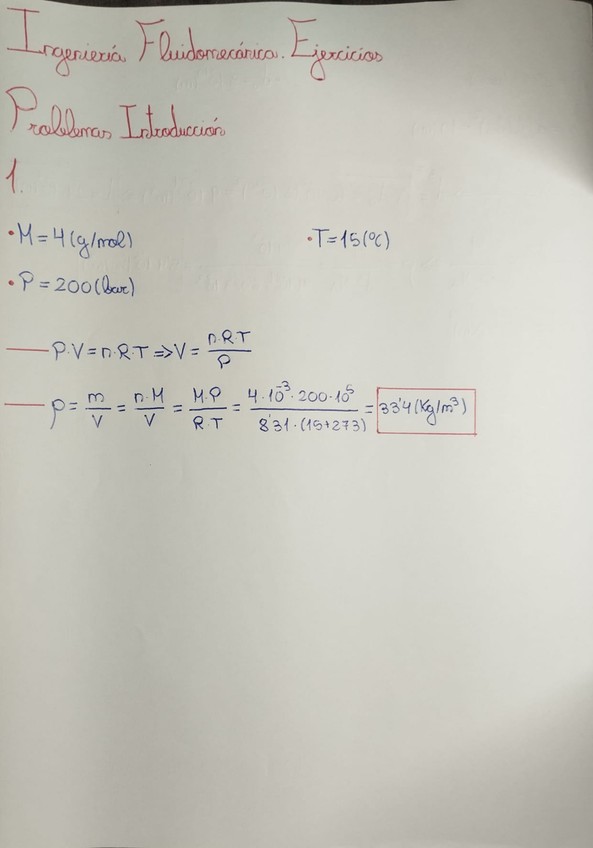 Ingeniería Fluidomecánica. Ejercicios
Problemas Introducción
1.
• M = 4 (g/mol) • T = 15 (ºC)
• P = 200 (bar)
— P·V = n·R·T => V = n·R·T / P
— ρ = m / V = n·M / V = M·P / R·T = 4·10⁻³·200·10⁵ / 8'31·(15+273) = 33'4 (Kg/m³)